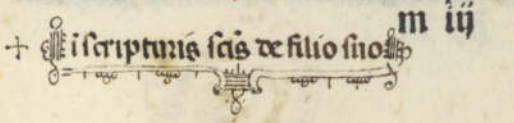 m iij
i scripturis scīs de filio suo